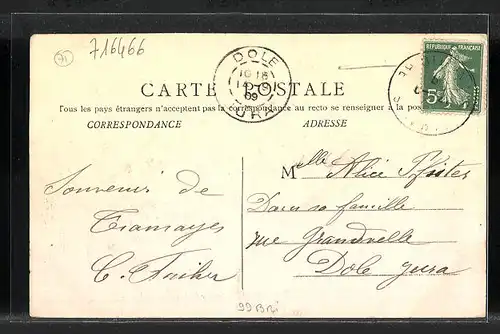 71
716466
DOLE
10 18
09
JURA
REPUBLIQUE FRANÇAISE
5
CARTE POSTALE
Tous les pays étrangers n'acceptent pas la correspondance au recto se renseigner à la poste
CORRESPONDANCE
ADRESSE
Souvenir de
Tramayes
C.
Mlle Alice Pfister
Dans sa famille
rue Grandvelle
Dole Jura